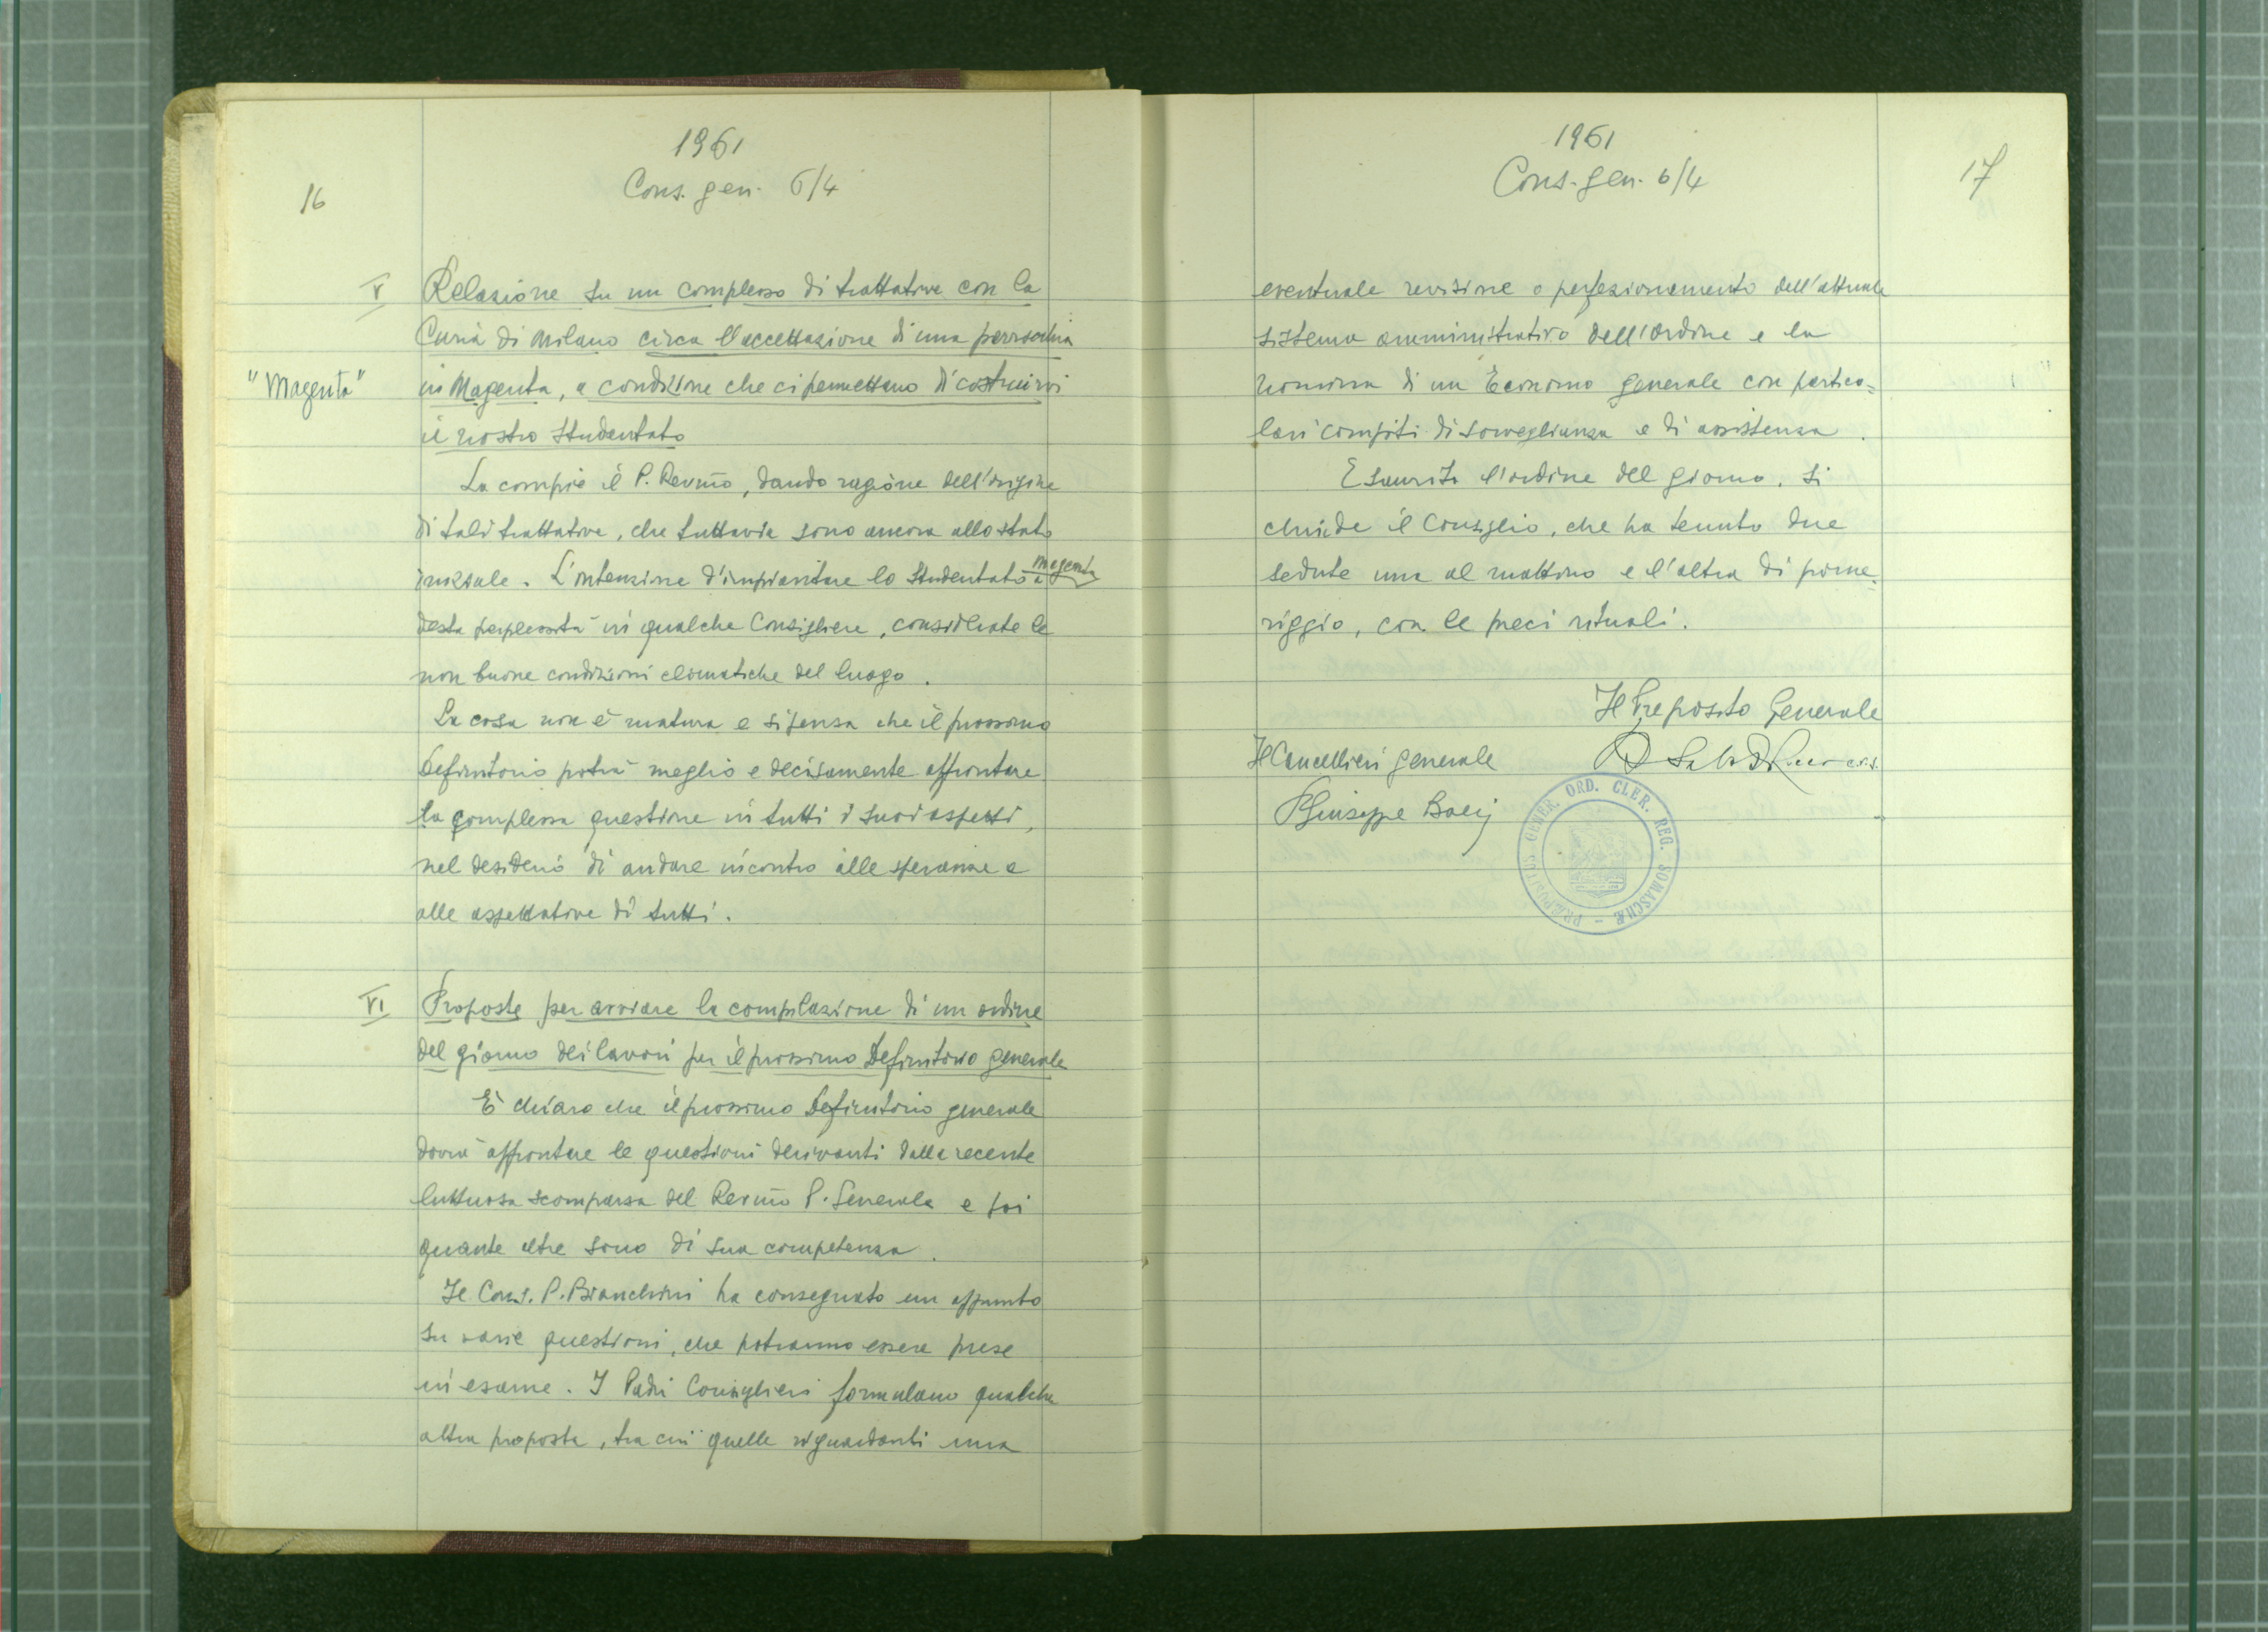 1961
Cons. gen. 6/4
16
V
Relazione su un complesso di trattative con la
Curia di Milano circa l'accettazione di una parrocchia
"Magenta"
in Magenta, a condizione che ci permettano di costruirvi
il nostro studentato
La compie il P. Rev.mo, dando ragione dell'origine
di tali trattative, che tuttavia sono ancora allo stato
iniziale. L'intenzione d'impiantare lo Studentato a Magenta
desta perplessità in qualche Consigliere, considerate le
non buone condizioni climatiche del luogo.
La cosa non è matura e si pensa che il prossimo
Definitorio potrà meglio e decisamente affrontare
la complessa questione in tutti i suoi aspetti,
nel desiderio di andare incontro alle speranze e
alle aspettative di tutti.
VI
Proposte per avviare la compilazione di un ordine
del giorno dei lavori per il prossimo Definitorio generale
È chiaro che il prossimo Definitorio generale
dovrà affrontare le questioni derivanti dalla recente
luttuosa scomparsa del Rev.mo P. Generale e poi
quante altre sono di sua competenza.
Il Cons. P. Bianchini ha consegnato un appunto
su varie questioni, che potranno essere prese
in esame. I Padri Consiglieri formulano qualche
altra proposta, tra cui quelle riguardanti una
1961
Cons. gen. 6/4
17
eventuale revisione o perfezionamento dell'attuale
sistema amministrativo dell'Ordine e la
nomina di un Economo generale con partico=
lari compiti di sorveglianza e di assistenza.
Esaurito l'ordine del giorno, si
chiude il Consiglio, che ha tenuto due
sedute una al mattino e l'altra di pome=
riggio, con le preci rituali.
Il Preposito Generale
Il Cancellieri generale
c.r.s.
P Giuseppe Boeris
PRÆPOSITUS GENER. ORD. CLER. REG. SOMASCHÆ